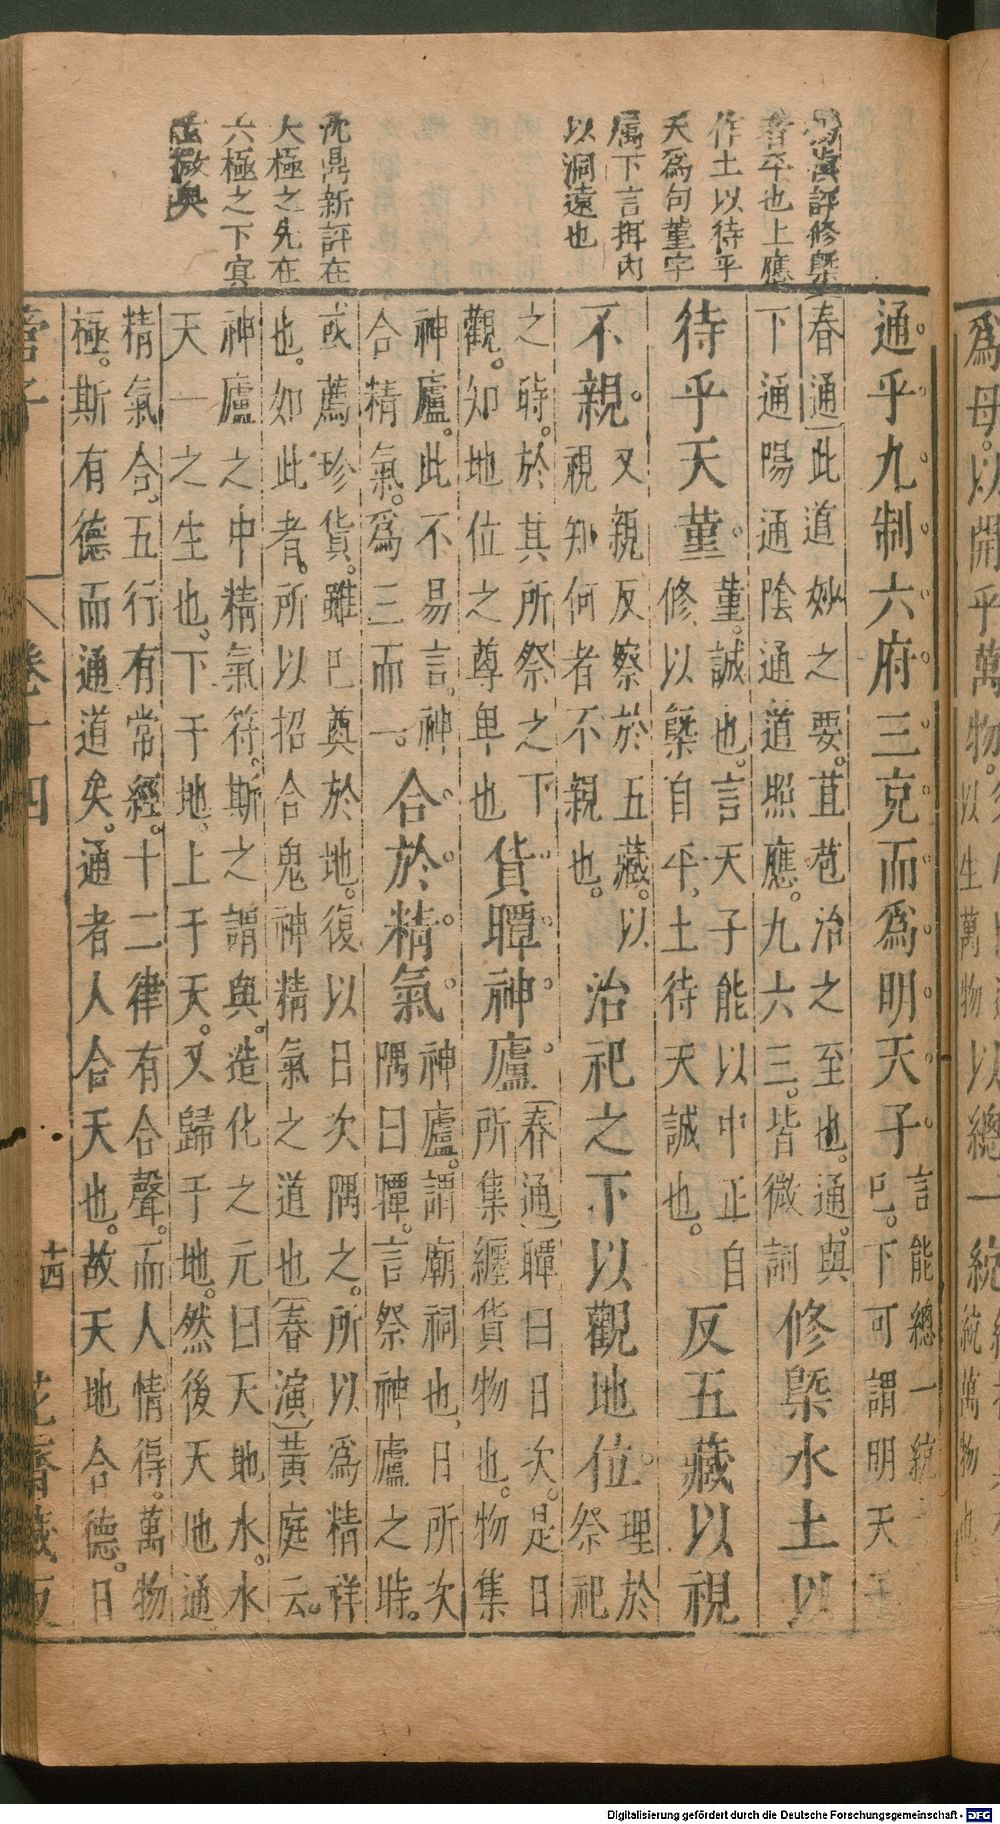 評修槩
者平也上應
作土以待乎
天爲句董字
属下言揖内
以洞遠也
沈鼎新評在
大極之先在
六極之下寘
玄微奥
通乎九制六府三克而爲明天子言能總一統
已下可謂明天
春通此道妙之要苴苞治之至也通與
下通陽通陰通道照應九六三皆微詞修槩水土以
待乎天菫菫誠也言天子能以中正自
修以槩自乎土待天誠也反五藏以視
不親又親反察於五藏以
視知何者不親也治祀之下以觀地位理於
祭祀
之時於其所祭之下
觀知地位之尊卑也貨曋神廬春通曋曰日次是日
所集纒貨物也物集
神廬此不易言神
合精氣爲三而一合於精氣神廬謂廟祠也日所次
隅曰曋言祭神廬之時
或薦珍貨雖已奠於地復以日次隅之所以爲精祥
也如此者所以招合鬼神精氣之道也春演黃庭云
神廬之中精氣符斯之謂與造化之元曰天地水水
天一之生也下于地上于天又歸于地然後天地通
精氣合五行有常經十二律有合聲而人情得萬物
極斯有德而通道矣通者人合天也故天地合德日
管子
卷十四
十四
花齋藏板
爲母以開乎萬物
以生萬物以總一統
統萬物也
Digitalisierung gefördert durch die Deutsche Forschungsgemeinschaft - DFG